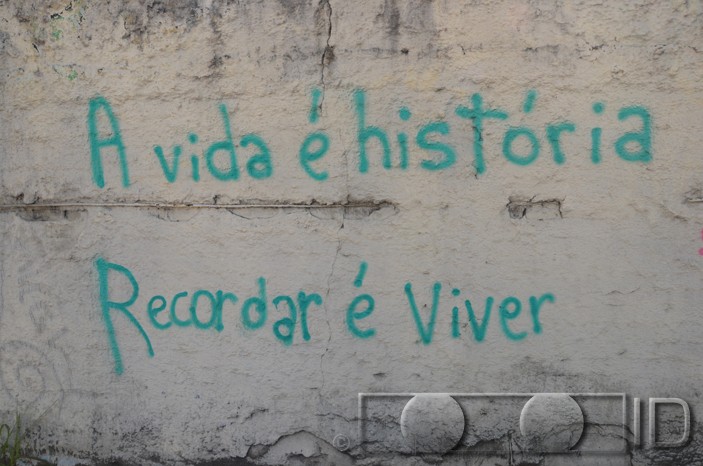 A vida é história
Recordar é Viver
© ID